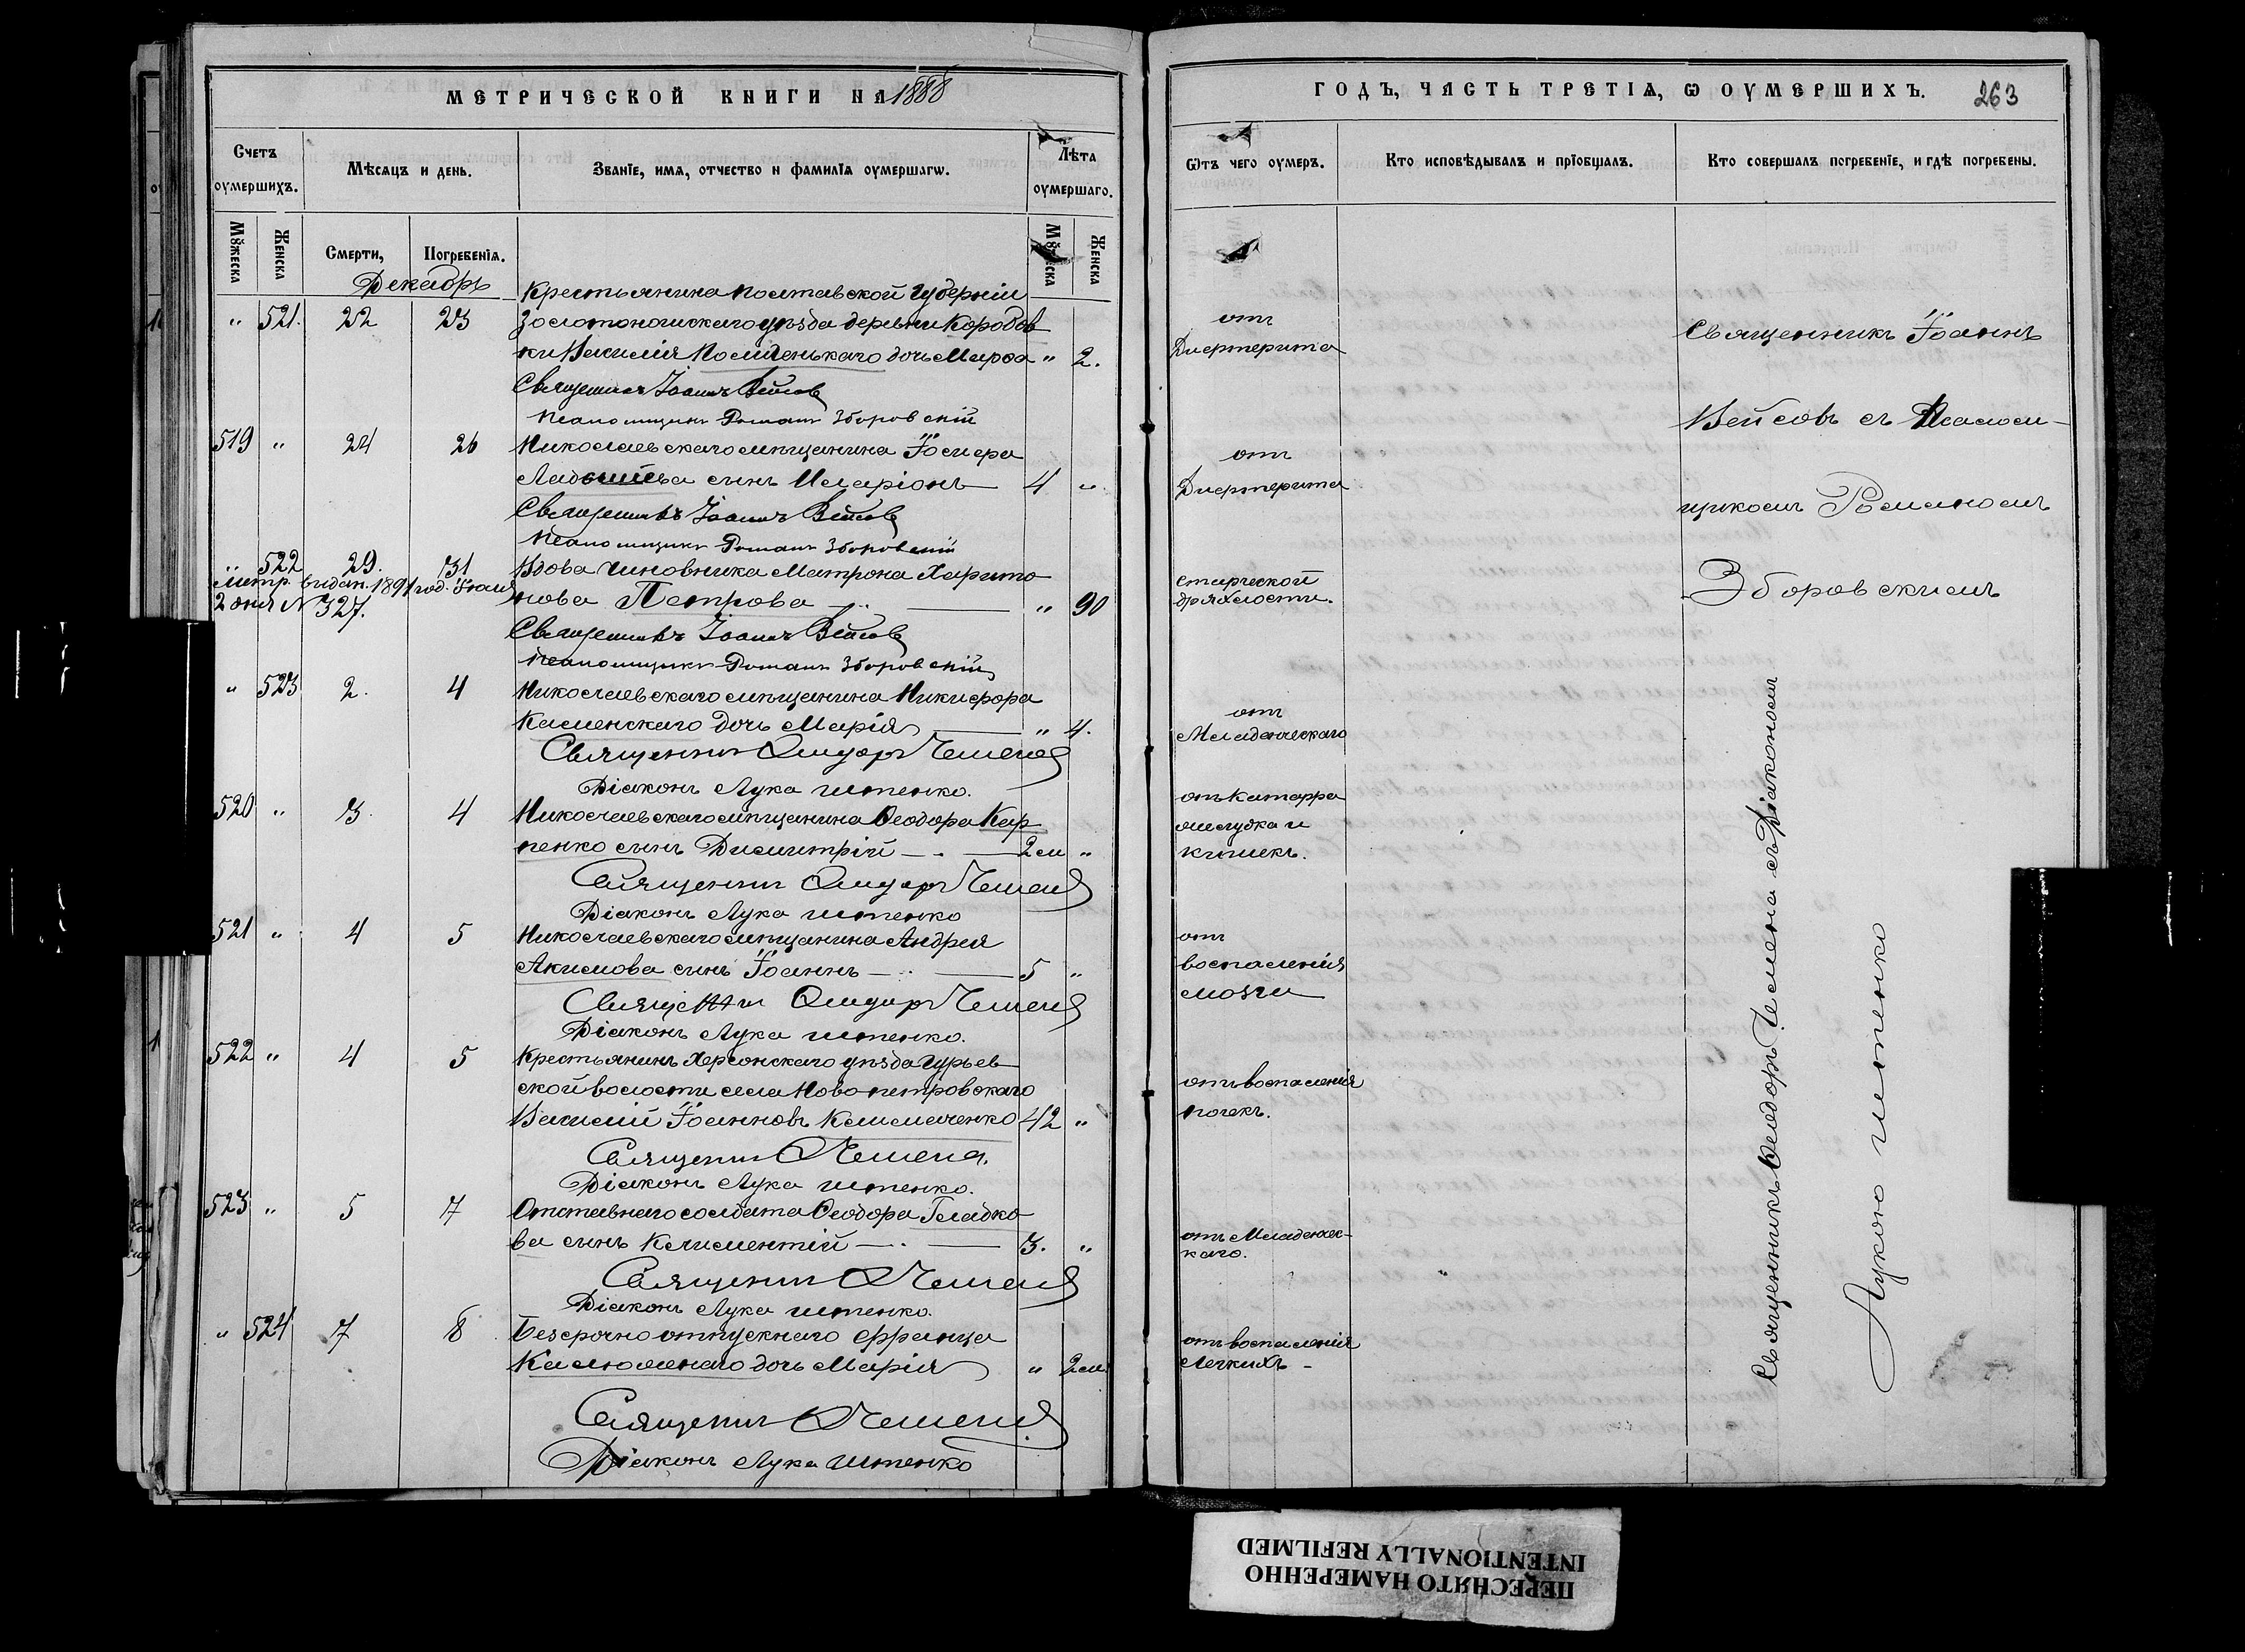 МЕТРИЧЕСКОЙ КНИГИ НА 1888
Счетъ оумершихъ.
Мѣсяцъ и день.
Званїе, имя, отчество и фамилїя оумершагѡ.
Лѣта оумершаго.
Мꙋжеска
Женска
Смерти,
Погребенїя.
Мꙋжеска
Женска
Декабрь
Крестьянина Полтавской Губерніи
" 521. 22 23 Золотоношскаго уѣзда деревни Коробов
ки Василія дочь Марѳа " 2.
Священникъ Іоаннъ Вейсовъ
Псаломщикъ Романъ Зборовскій
519 " 24 26 Николаевскаго мѣщанина Іосифа
сынъ Иларіонъ 4 "
Священникъ Іоаннъ Вейсовъ
Псаломщикъ Романъ Зборовскій
" 522 29. 31 Вдова чиновника Матрона Харито
метр. выдан. 1891 год. Іюля
2 дня № 327.
нова Петрова " 90
Священникъ Іоаннъ Вейсовъ
Псаломщикъ Романъ Зборовскій
" 523 2. 4 Николаевскаго мѣщанина Никифора
Каменскаго дочь Марія " 4.
Священникъ Ѳеодоръ Чемена
Діаконъ Лука Штенко.
520 " 3. 4 Николаевскаго мѣщанина Ѳеодора Кар
пенко сынъ Димитрій 2 м "
Священникъ Ѳеодоръ Чемена
Діаконъ Лука Штенко
521 " 4 5 Николаевскаго мѣщанина Андрея
Акимова сынъ Іоаннъ 5 "
Священникъ Ѳеодоръ Чемена
Діаконъ Лука Штенко.
522 " 4 5 Крестьянинъ Херсонскаго уѣзда Гурьев
ской волости села Новопетровскаго
Василій Іоанновъ Климаченко 42 "
Священникъ Ѳ Чемена.
Діаконъ Лука Штенко.
523 " 5 7 Отставнаго солдата Ѳеодора Гладко
ва сынъ Климентій 3. "
Священникъ Ѳ Чемена
Діаконъ Лука Штенко.
" 524 7 8 Безсрочно отпускнаго Франца
дочь Марія " 2 м
Священникъ Ѳ Чемена
Діаконъ Лука Штенко
ГОДЪ, ЧАСТЬ ТРЕТІЯ, Ѡ ОУМЕРШИХЪ. 263
Ѿтъ чего оумеръ.
Кто исповѣдывалъ и прїобщалъ.
Кто совершалъ погребенїе, и гдѣ погребены.
отъ
Дифтерита
отъ
Дифтерита
старческой
дряхлости.
отъ
Младенческаго
отъ катарра
желудка и
кишекъ.
отъ
воспаленія
мозга
отъ воспаленія
почекъ.
отъ Младенчес-
каго.
отъ воспаленія
Легкихъ
Священникъ Іоаннъ
Вейсовъ съ Псалом-
щикомъ Романомъ
Зборовскимъ
Священникъ Ѳеодоръ Чемена съ Діакономъ
Лукою Штенко
ПЕРЕСНЯТО НАМЕРЕННО
INTENTIONALLY REFILMED